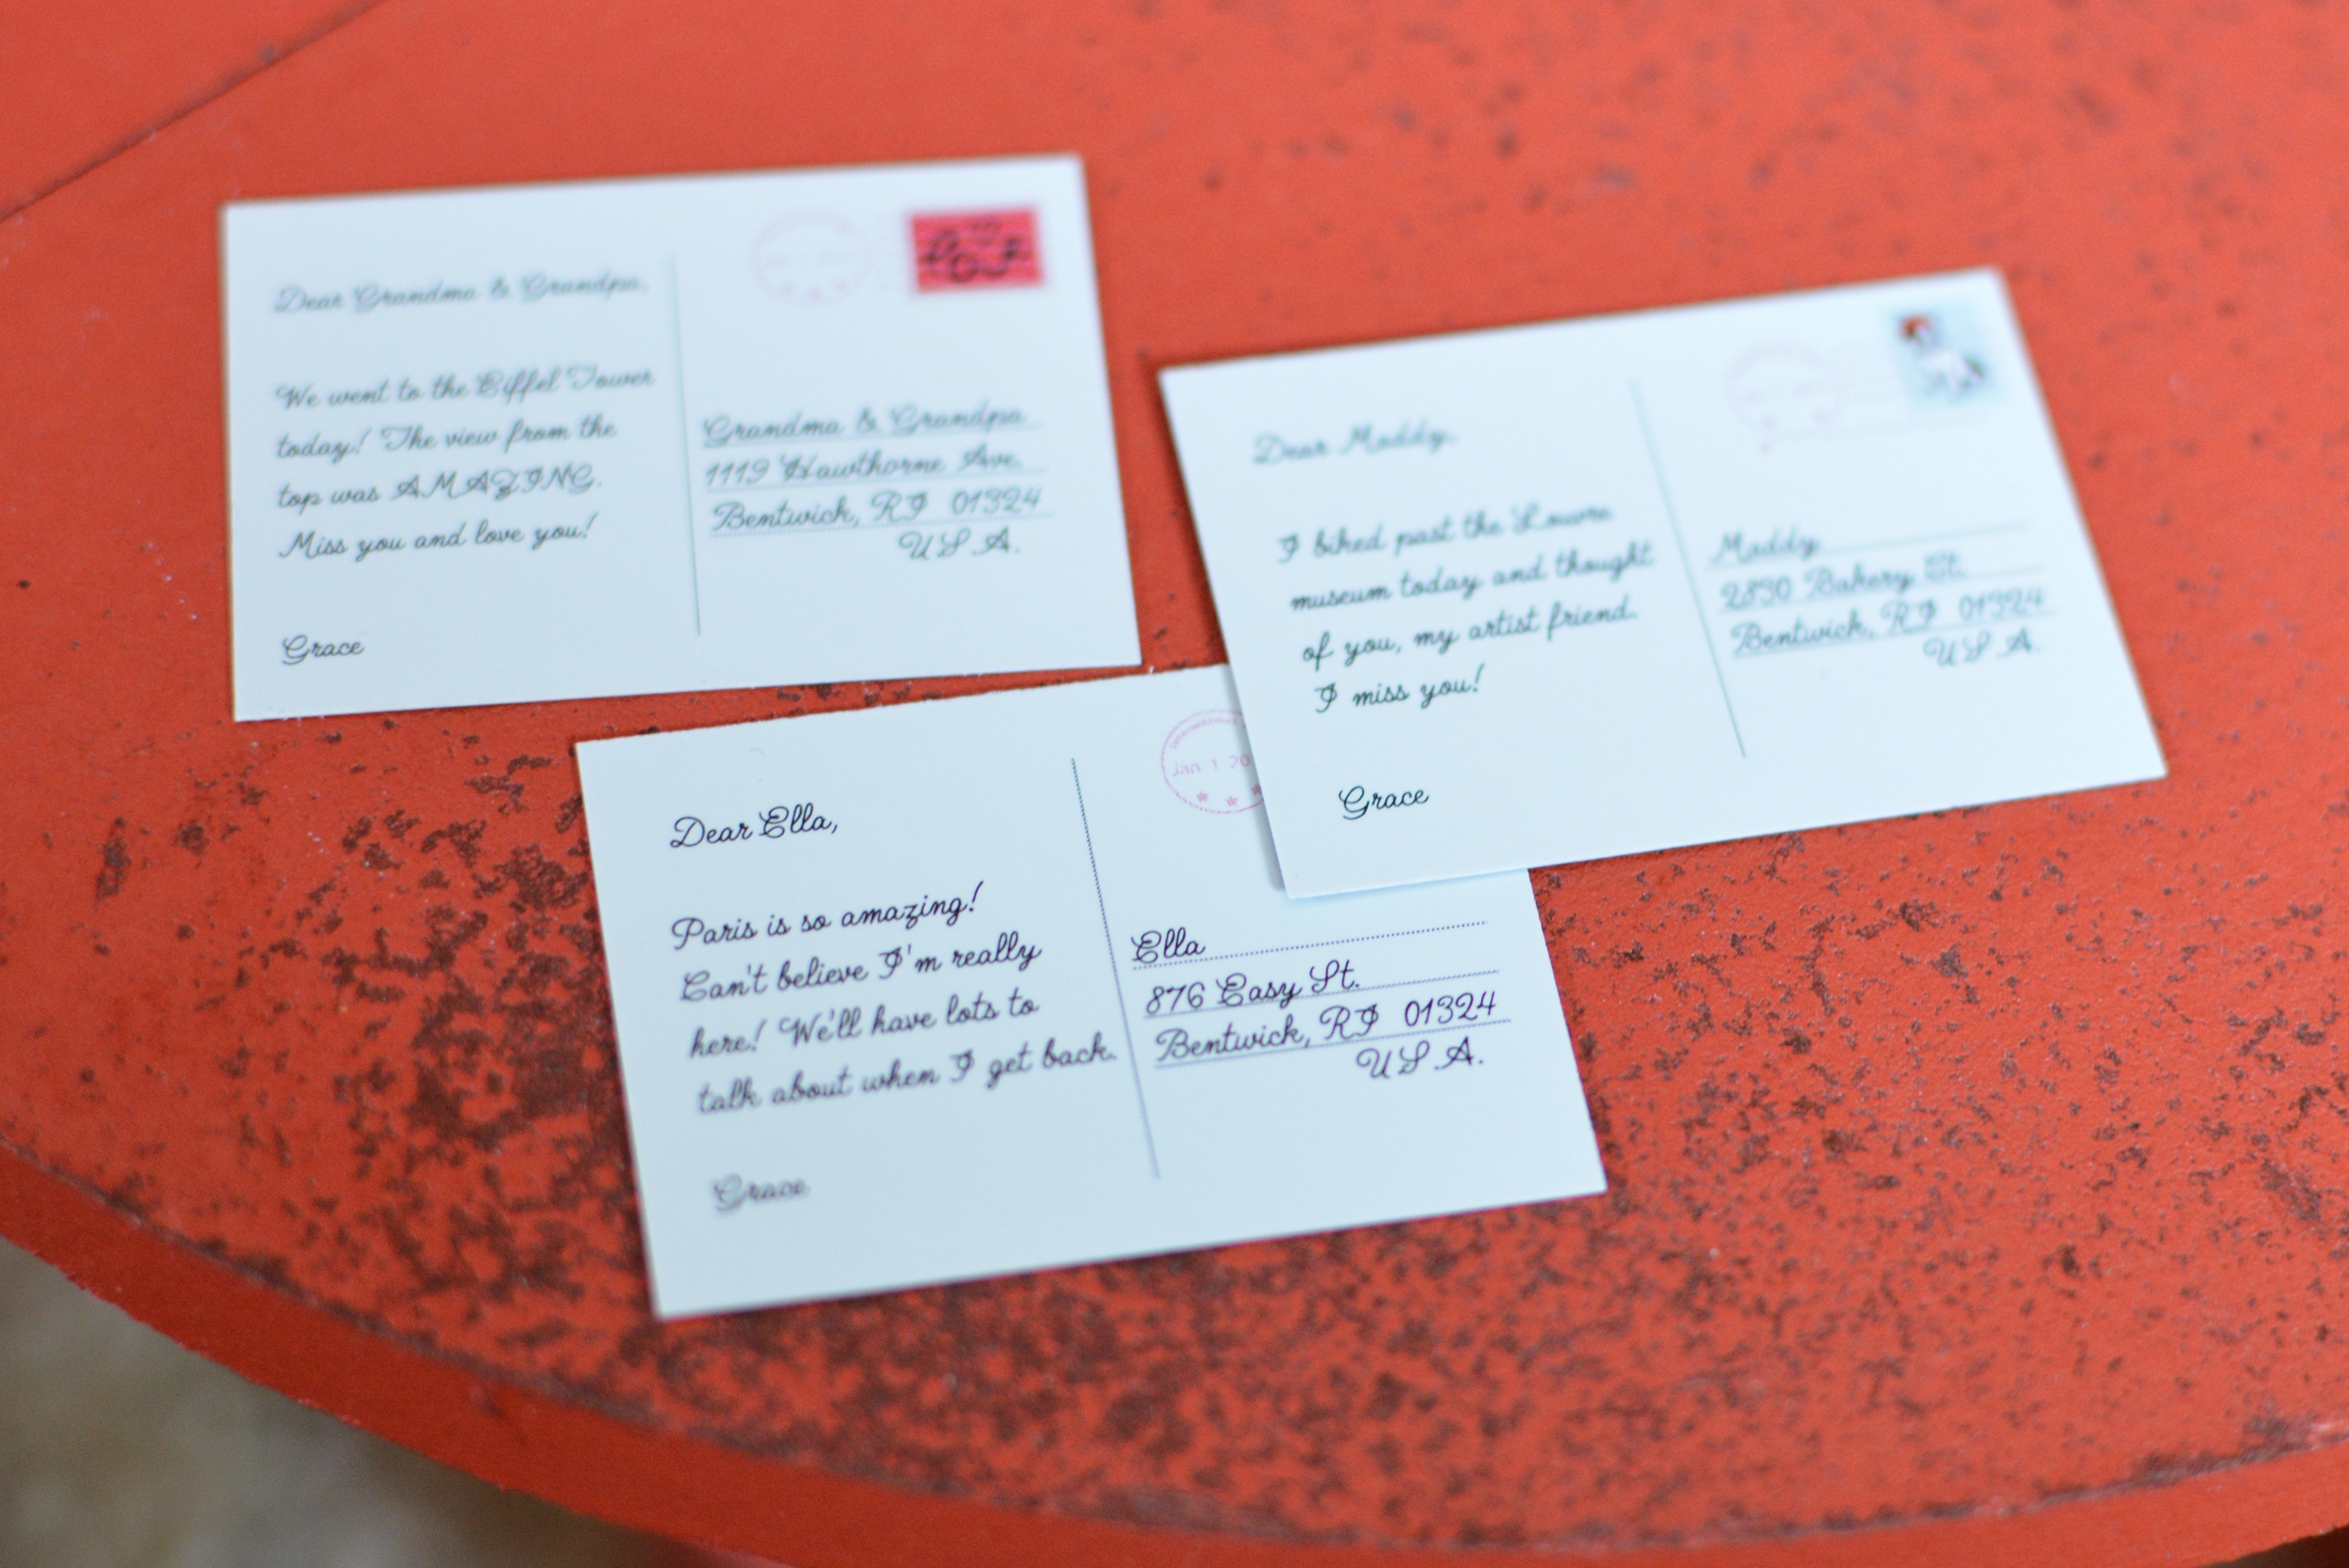 Dear Grandma & Grandpa,
We went to the Eiffel Tower
today! The view from the
top was AMAZING.
Miss you and love you!
Grace
Grandma & Grandpa
1119 Hawthorne Ave.
Bentwick, RI 01324
U.S.A.
Dear Maddy,
I biked past the Louvre
museum today and thought
of you, my artist friend.
I miss you!
Grace
Maddy
2830 Bakery St.
Bentwick, RI 01324
U.S.A.
Dear Ella,
Paris is so amazing!
Can't believe I'm really
here! We'll have lots to
talk about when I get back.
Grace
Jan 1 20
Ella
876 Easy St.
Bentwick, RI 01324
U.S.A.